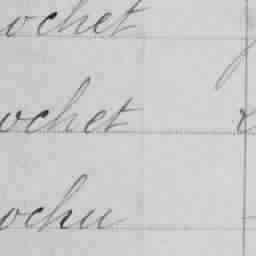 ochet
ochet
ochu